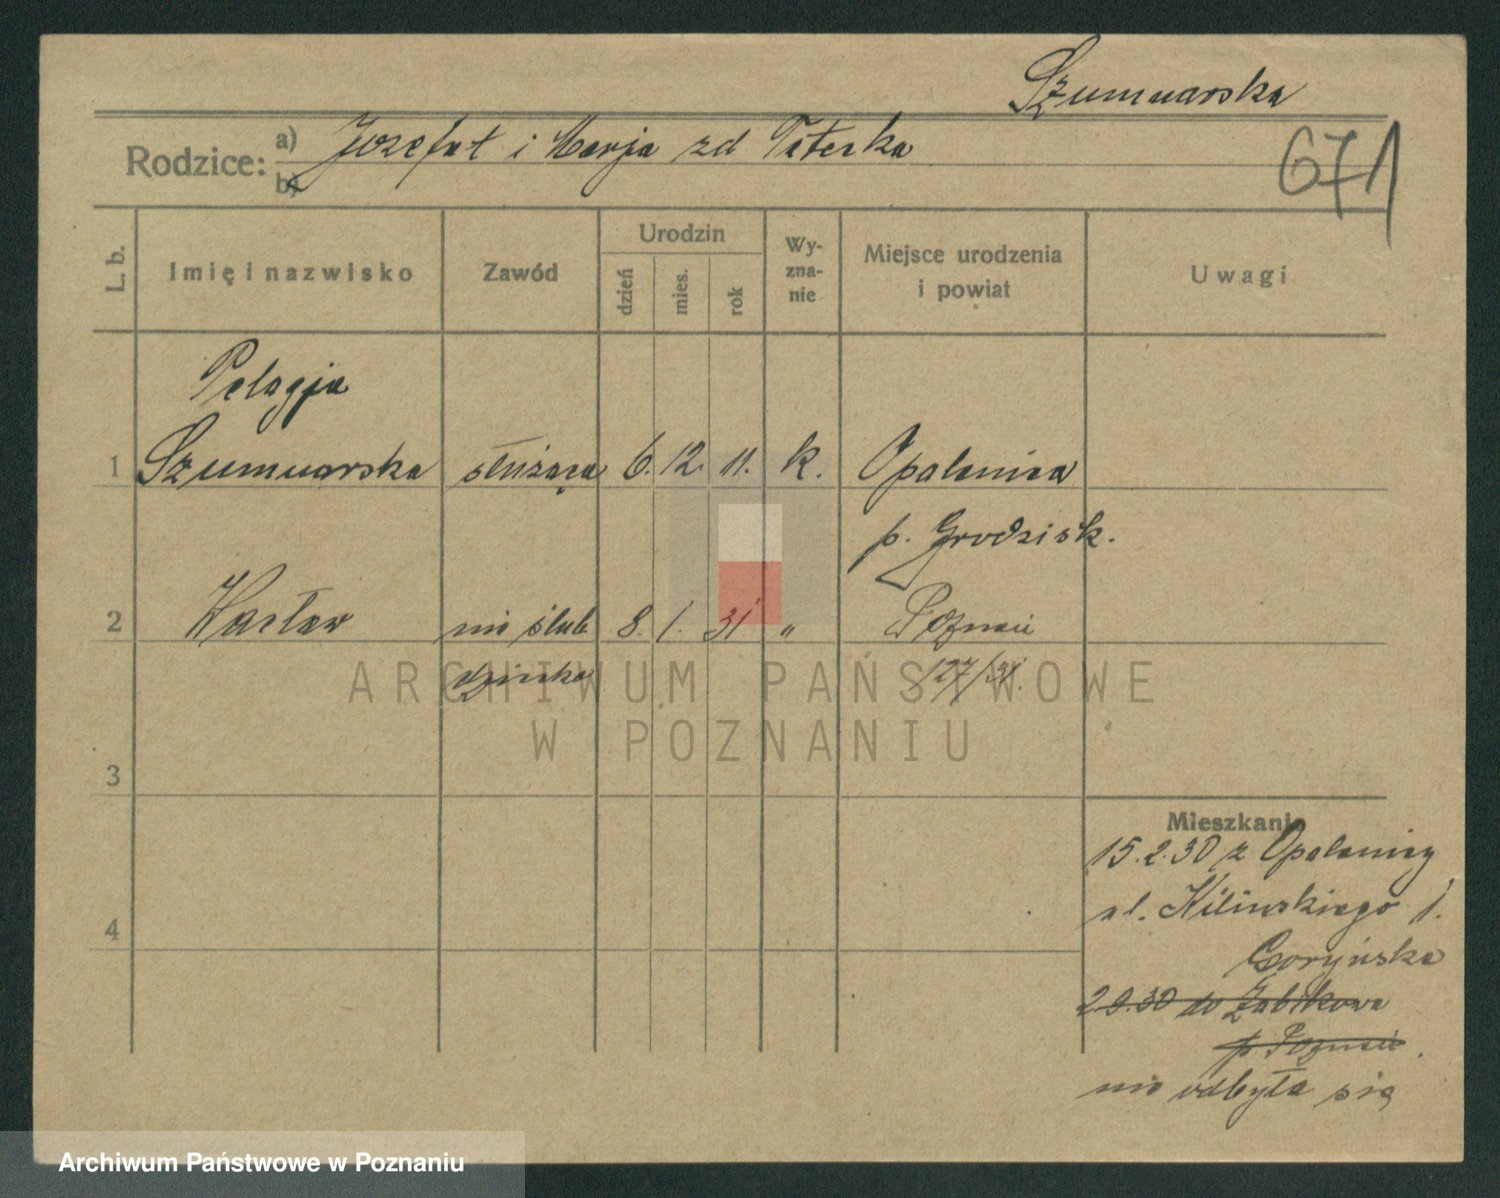 Szumnarska
Rodzice: a) Jozefat i Marja zd Teterka
b)
671
L. b.
Imię i nazwisko
Zawód
Urodzin
dzień
mies.
rok
Wy-
zna-
nie
Miejsce urodzenia
i powiat
Uwagi
Pelagja
1 Szumnarska służąca 6. 12. 11. k. Opalenica
p. Grodzisk.
2 Wacław nie ślub 8. 1. 31 " Poznań
dziecko 127/31.
ARCHIWUM PAŃSTWOWE
W POZNANIU
3
Mieszkanie
15.2.30 z Opalenicy
ul. Kilińskiego 1.
4
Goryńska
2.9.30 do Żabikowa
p Poznań.
nie odbyła się
Archiwum Państwowe w Poznaniu